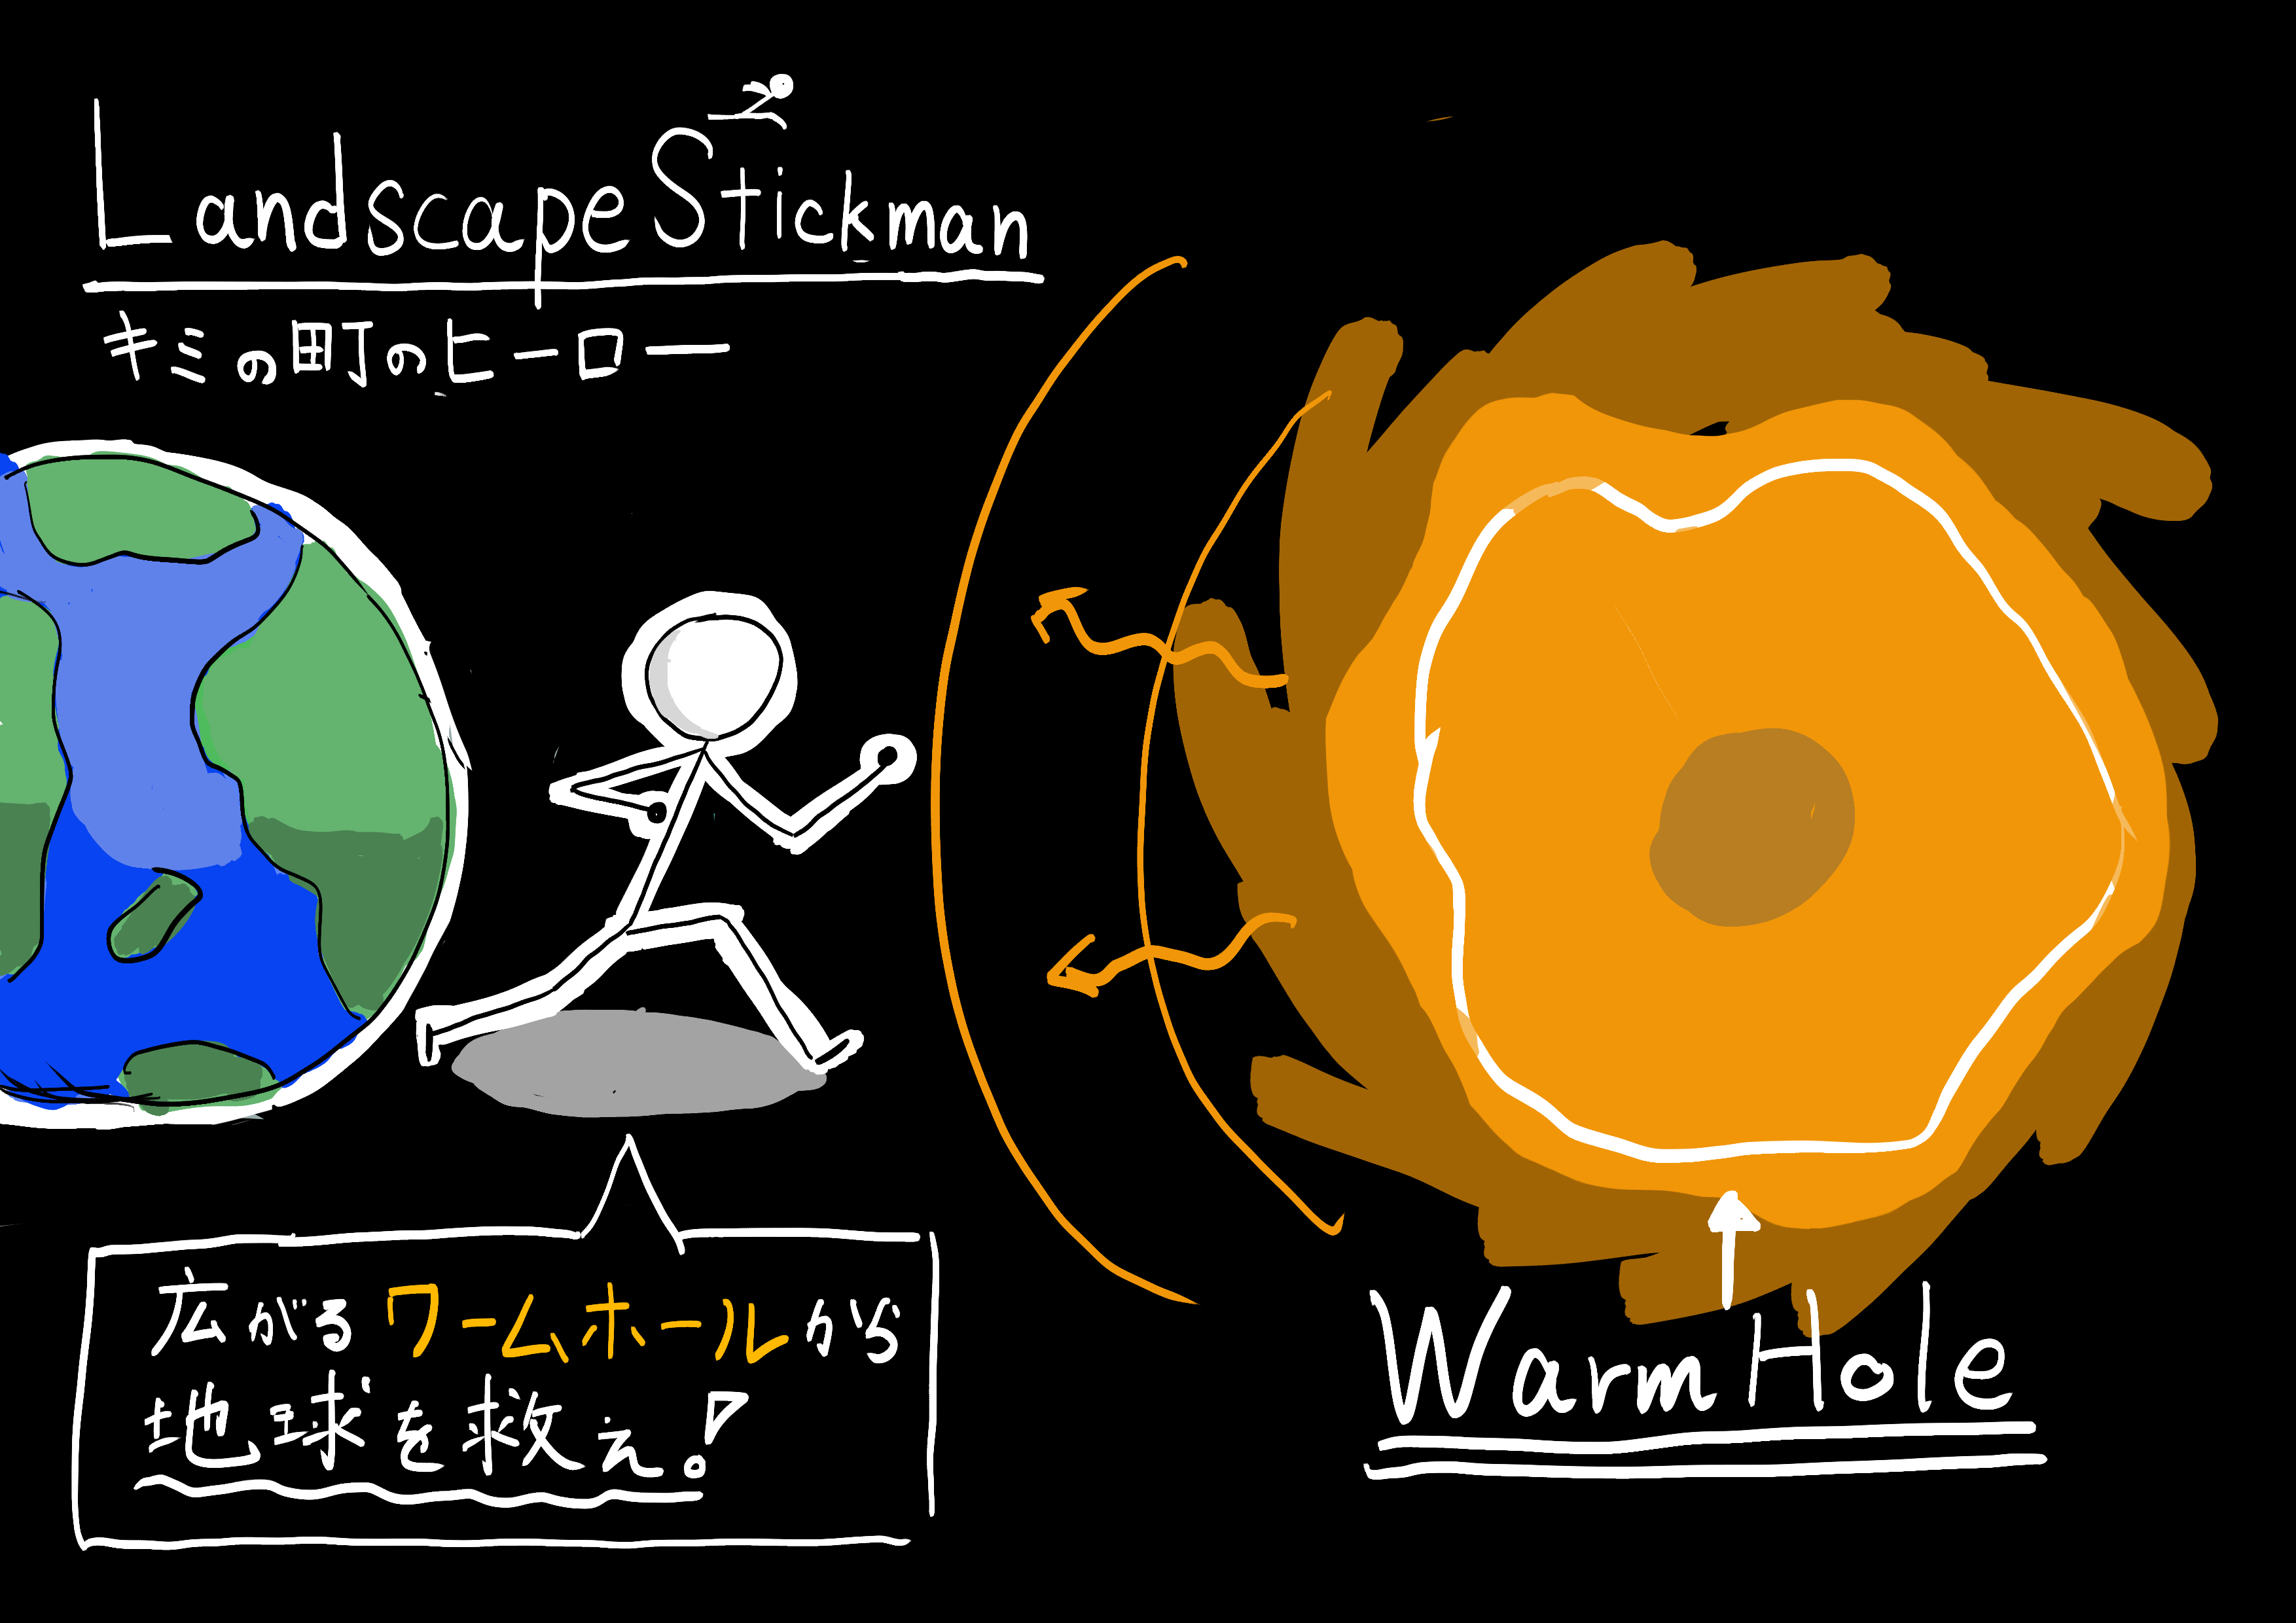 LandscapeStickman
キミの町のヒーロー
広がるワームホールから
地球を救え!
WarmHole